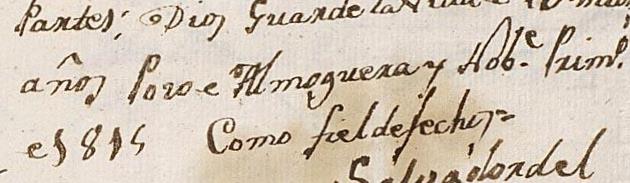 Partes; Dios Guarde la
años Pozo e Almoguera y Nobe. Primo.
e 1815 Como fiel de fechos=
Salvador del